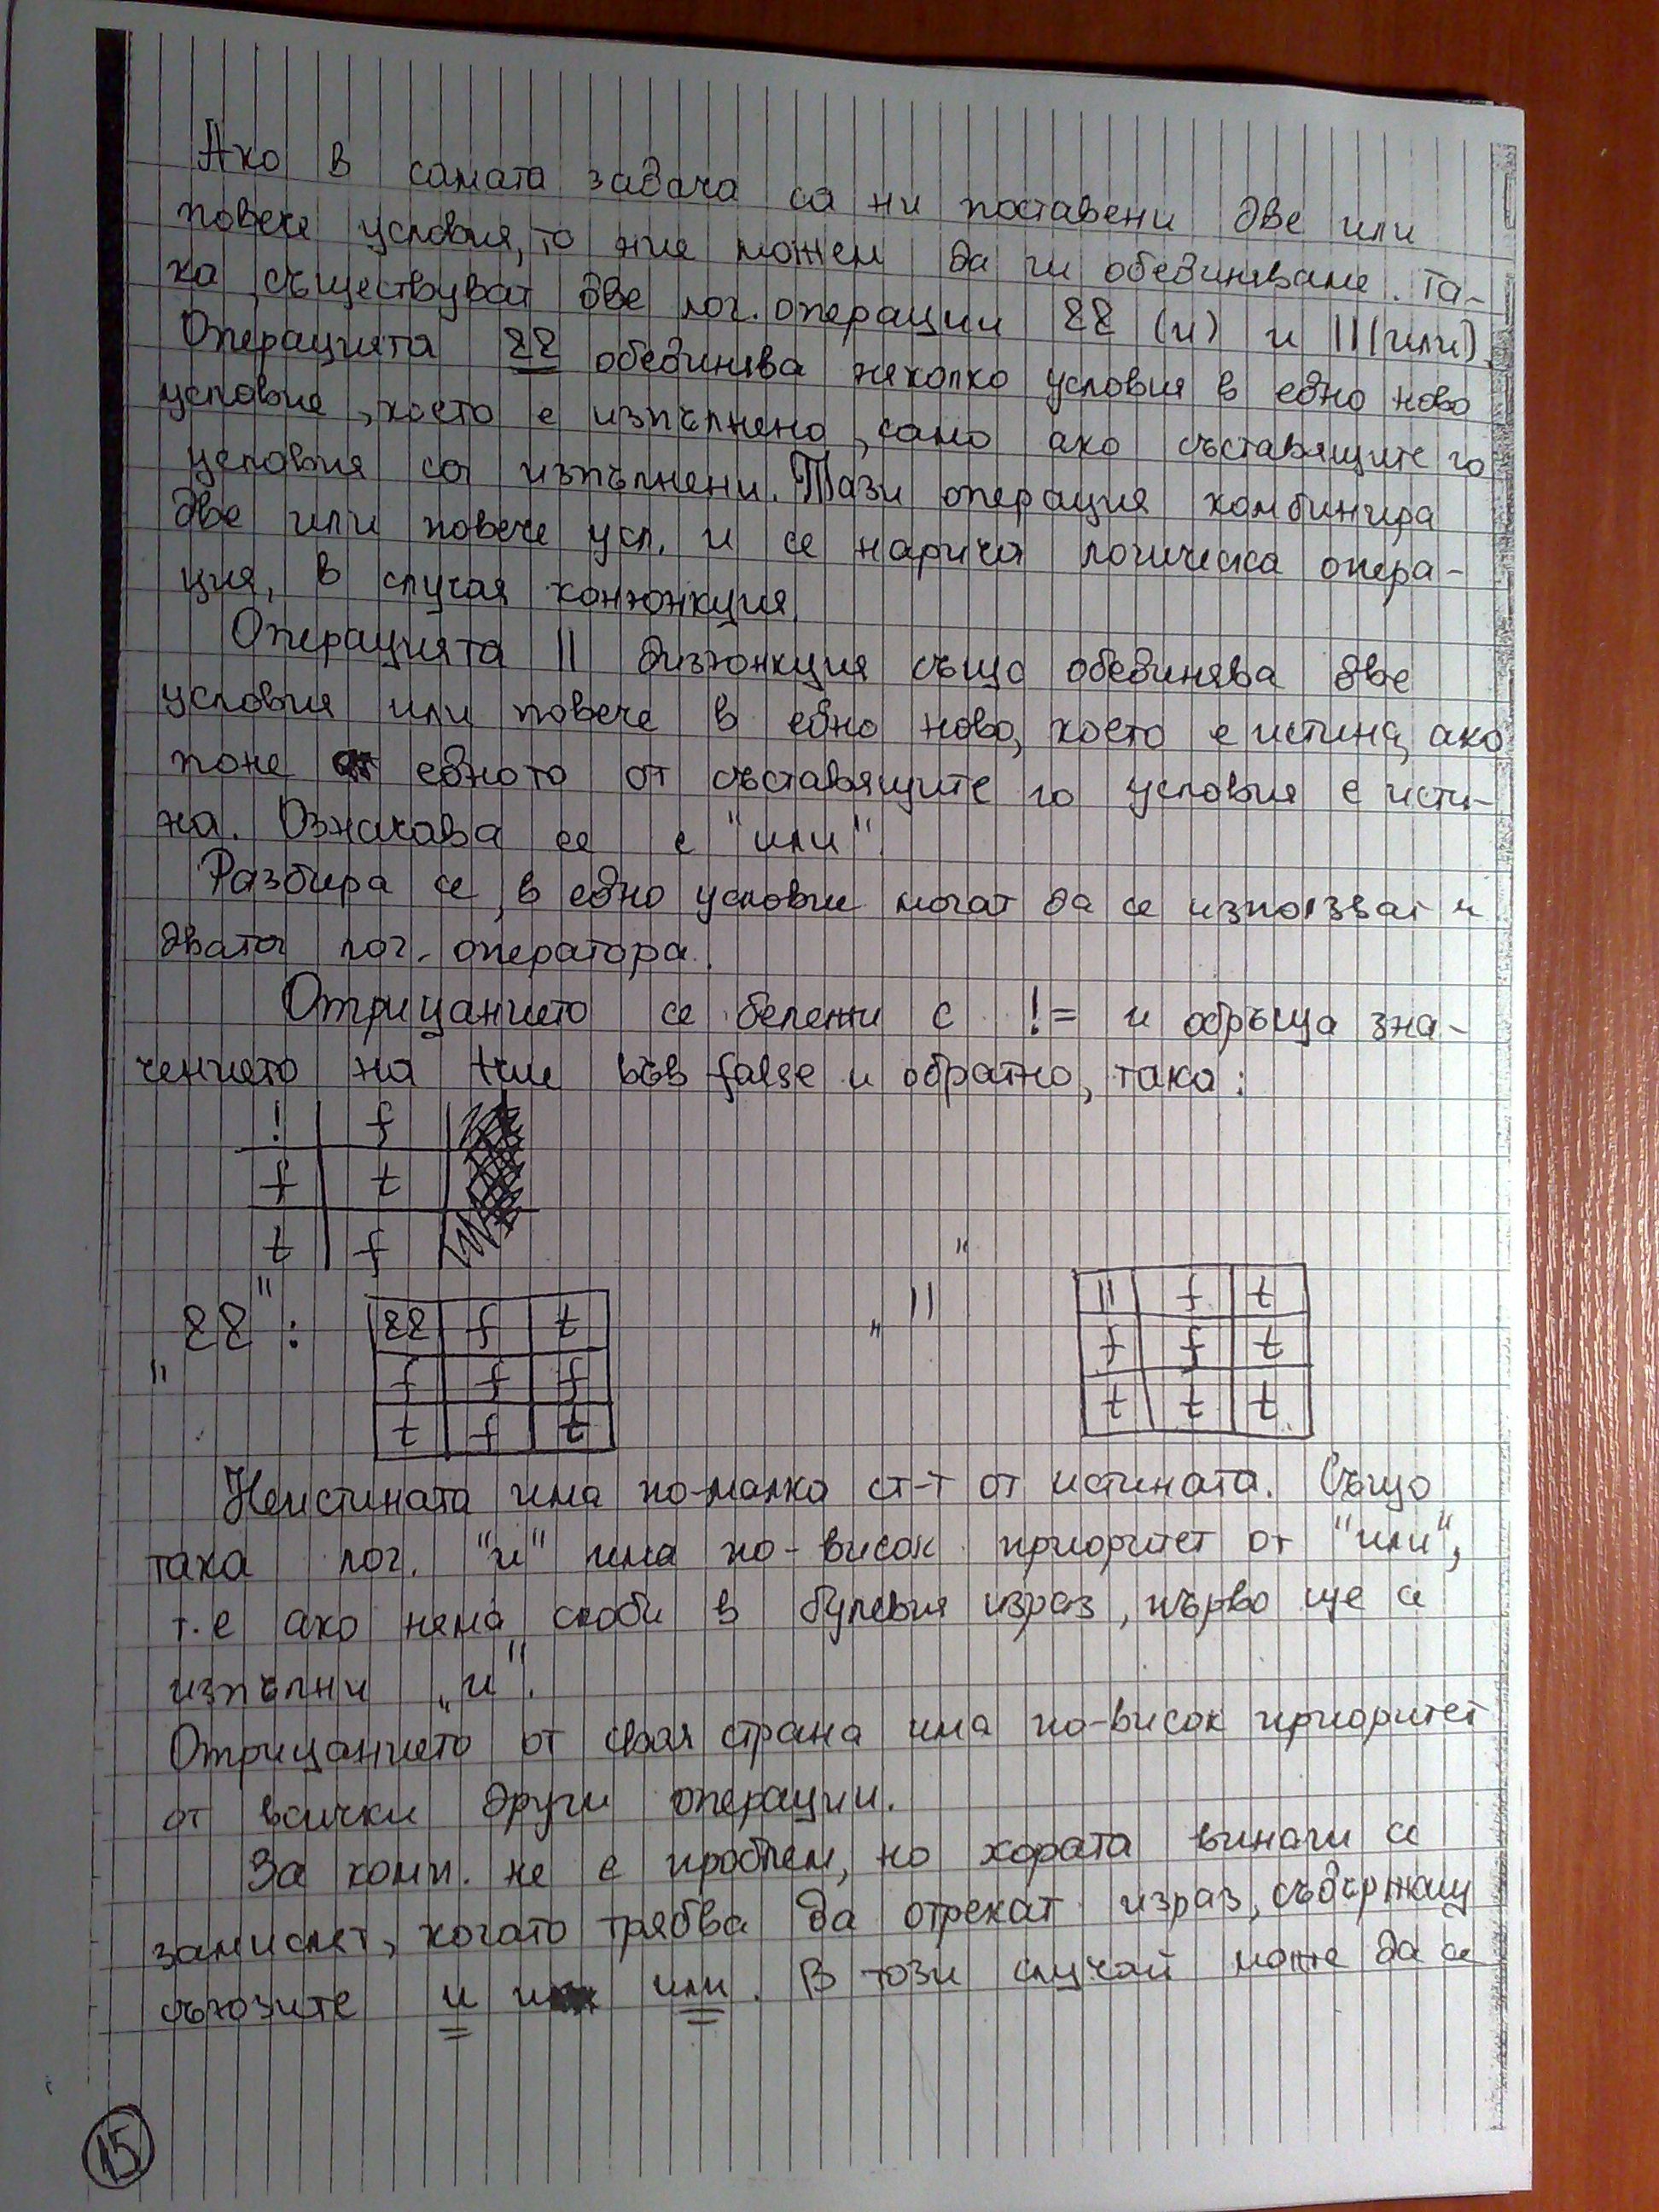 Ако в самата задача са ни поставени две или
повече условия, то ние можем да ги обединяваме. Та-
ка съществуват две лог. операции && (и) и || (или).
Операцията && обединява няколко условия в едно ново
условие, което е изпълнено, само ако съставящите го
условия са изпълнени. Тази операция комбинира
две или повече усл. и се нарича логическа опера-
ция, в случая конюнкция.
Операцията || дизюнкция също обединява две
условия или повече в едно ново, което е истина, ако
поне едното от съставящите го условия е исти-
на. Означава се с "или".
Разбира се, в едно условие могат да се използват и
двата лог. оператора.
Отрицанието се бележи с != и обръща зна-
чението на true във false и обратно, така:
! f
f t
t f
„&&": && f t
f f f
t f t
„||" || f t
f f t
t t t
Неистината има по-малка ст-т от истината. Също
така лог. "и" има по-висок приоритет от "или",
т.е ако няма скоби в булевия израз, първо ще се
изпълни „и".
Отрицанието от своя страна има по-висок приоритет
от всички други операции.
За комп. не е проблем, но хората винаги се
замислят, когато трябва да отрекат израз, съдържащ
съюзите и или. В този случай може да се
15